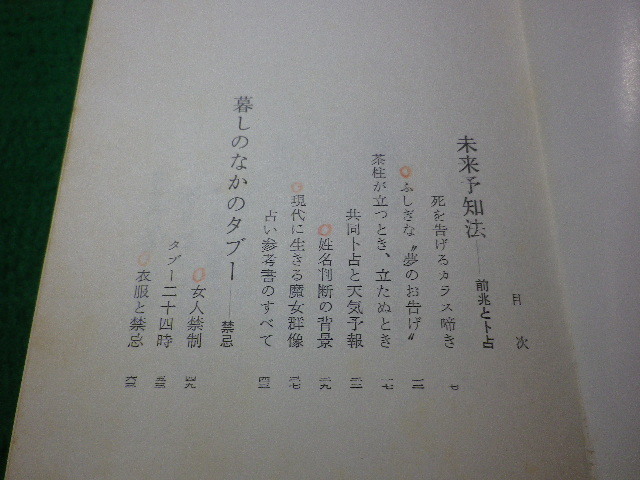 目次
未来予知法——前兆と卜占
死を告げるカラス啼き 七
ふしぎな〝夢のお告げ〟
茶柱が立つとき、立たぬとき 一七
共同卜占と天気予報
姓名判断の背景 二九
現代に生きる魔女群像 三七
占い参考書のすべて
暮しのなかのタブー——禁忌
女人禁制 四九
タブー二十四時
衣服と禁忌